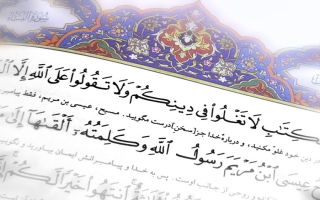 كِتَٰبِ لَا تَغْلُوا۟ فِى دِينِكُمْ وَلَا تَقُولُوا۟ عَلَى ٱللَّهِ إِلَّا
دین خود غلو مکنید، و درباره خدا جز سخن درست مگویید. مسیح، عیسی بن مریم، فقط پیامبر
عِيسَى ٱبْنُ مَرْيَمَ رَسُولُ ٱللَّهِ وَكَلِمَتُهُۥٓ أَلْقَىٰهَآ إِلَىٰ
و روحی از جانب اوست. پس به خدا و پیامبرانش ایمان بیاورید و
ثَلَٰثَةٌ ٱنتَهُوا۟ خَيْرًا لَّكُمْ